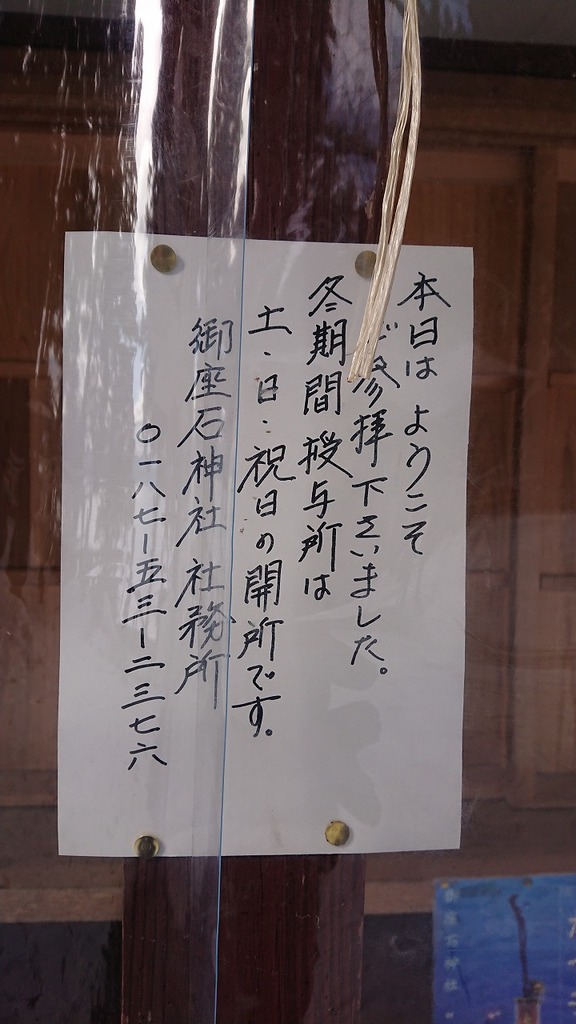 本日は ようこそ
ご参拝下さいました。
冬期間 授与所は
土・日・祝日の開所です。
御座石神社 社務所
〇一八七ー五三ー二三七六
御座石神社